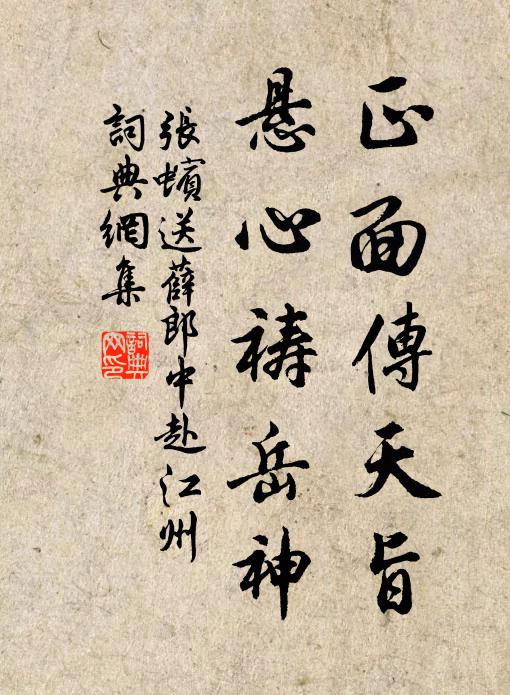 正面傳天旨
悬心祷岳神
張蠙送薛郎中赴江州
詞典網集
詞典
网印